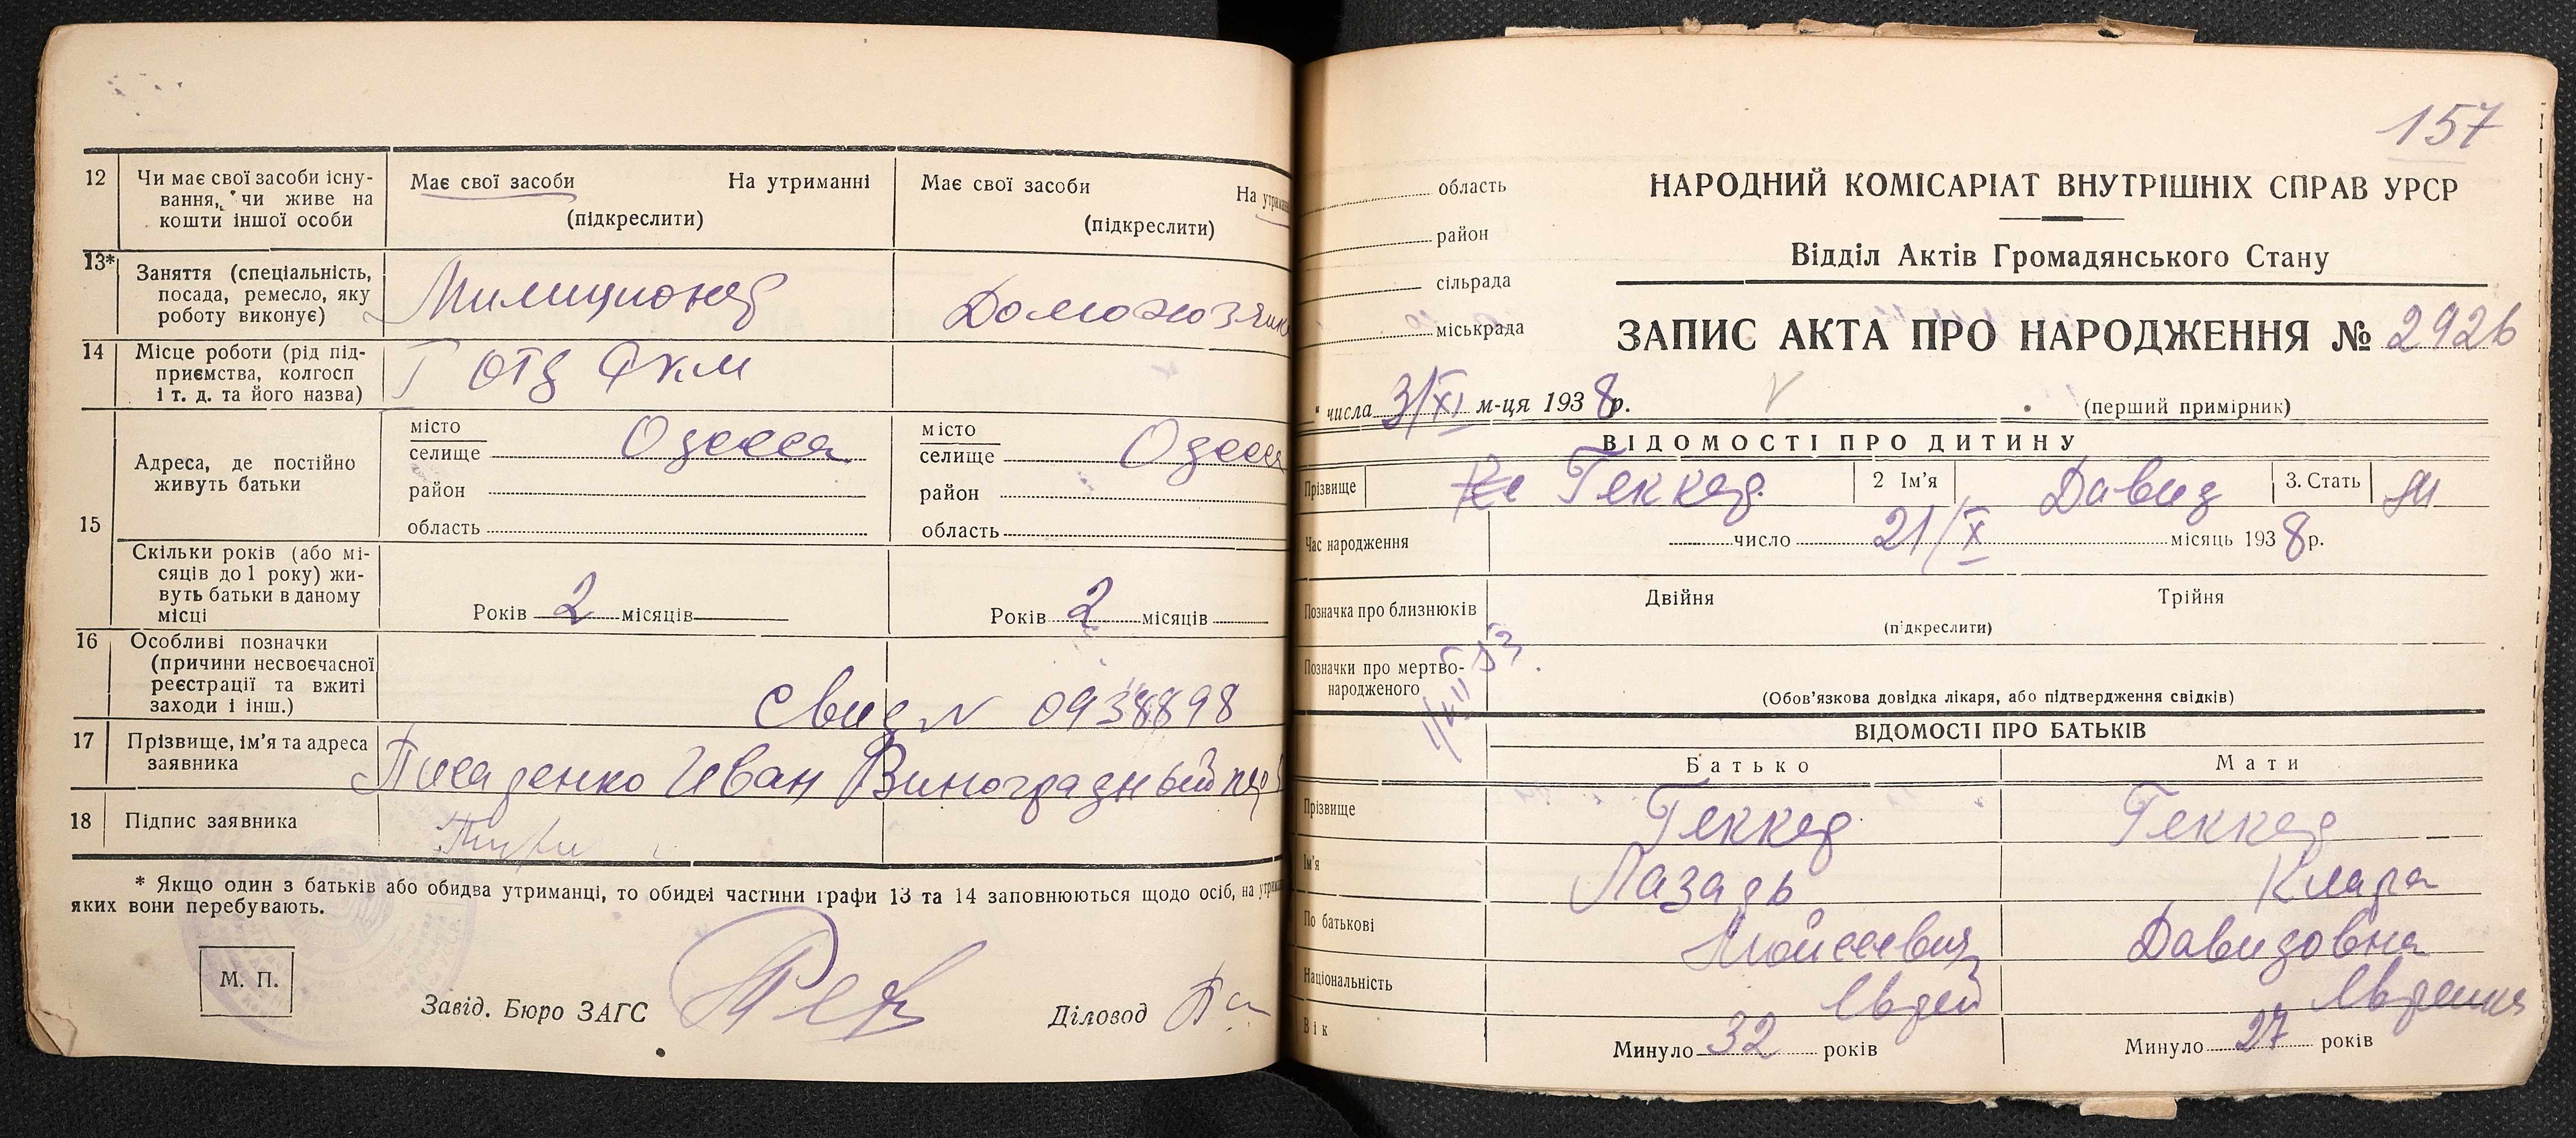 12 Чи має свої засоби існу-
вання, чи живе на
кошти іншої особи
Має свої засоби На утриманні
(підкреслити)
Має свої засоби На утриман
(підкреслити)
13* Заняття (спеціальність,
посада, ремесло, яку
роботу виконує)
Милиционер
Домохозяйка
14 Місце роботи (рід під-
приємства, колгосп
і т. д. та його назва)
отд РКМ
15
Адреса, де постійно
живуть батьки
місто
селище Одесса
район
область
місто
селище Одесса
район
область
Скільки років (або мі-
сяців до 1 року) жи-
вуть батьки в даному
місці
Років 2 місяців
Років 2 місяців
16 Особливі позначки
(причини несвоєчасної
реєстрації та вжиті
заходи і інш.)
Свид N 0938898
17 Прізвище, ім'я та адреса
заявника
Писаренко Иван Виноградный пер
18 Підпис заявника
* Якщо один з батьків або обидва утриманці, то обидві частини графи 13 та 14 заповнюються щодо осіб, на утрим
яких вони перебувають.
М. П.
Завід. Бюро ЗАГС
Діловод
157
область
район
сільрада
міськрада
НАРОДНИЙ КОМІСАРІАТ ВНУТРІШНІХ СПРАВ УРСР
Відділ Актів Громадянського Стану
ЗАПИС АКТА ПРО НАРОДЖЕННЯ № 2926
" числа 3/XI м-ця 1938р.
(перший примірник)
ВІДОМОСТІ ПРО ДИТИНУ
Прізвище Геккер 2 Ім'я Давид 3. Стать
Час народження число 21/X місяць 1938р.
Позначка про близнюків
Двійня Трійня
(підкреслити)
Позначки про мертво-
народженого
(Обов'язкова довідка лікаря, або підтвердження свідків)
ВІДОМОСТІ ПРО БАТЬКІВ
Батько Мати
Прізвище Геккер Геккер
Ім'я Лазарь Клара
По батькові Мойсеевич Давидовна
Національність Еврей Еврейка
Вік Минуло 32 років Минуло 27 років